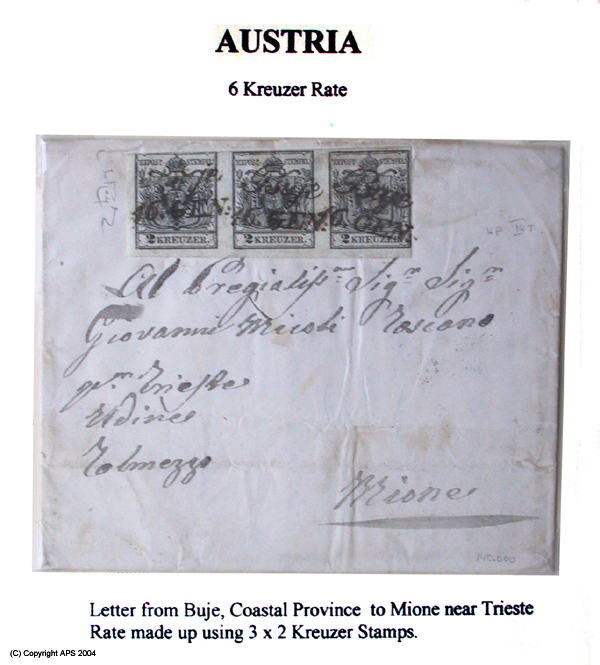 AUSTRIA
6 Kreuzer Rate
KPOST STEMPEL KPOST STEMPEL KPOST STEMPEL
Buje Buje
10. GEN: 10. GEN: GEN.
2 KREUZER. 2 KREUZER. 2 KREUZER.
HP III
Al Pregiatiss.mo Sig.r Sig.r
Giovanni Micoli Toscano
p.r Trieste
Udine
Tolmezzo
Mione
140.000
Letter from Buje, Coastal Province to Mione near Trieste
Rate made up using 3 x 2 Kreuzer Stamps.
(C) Copyright APS 2004